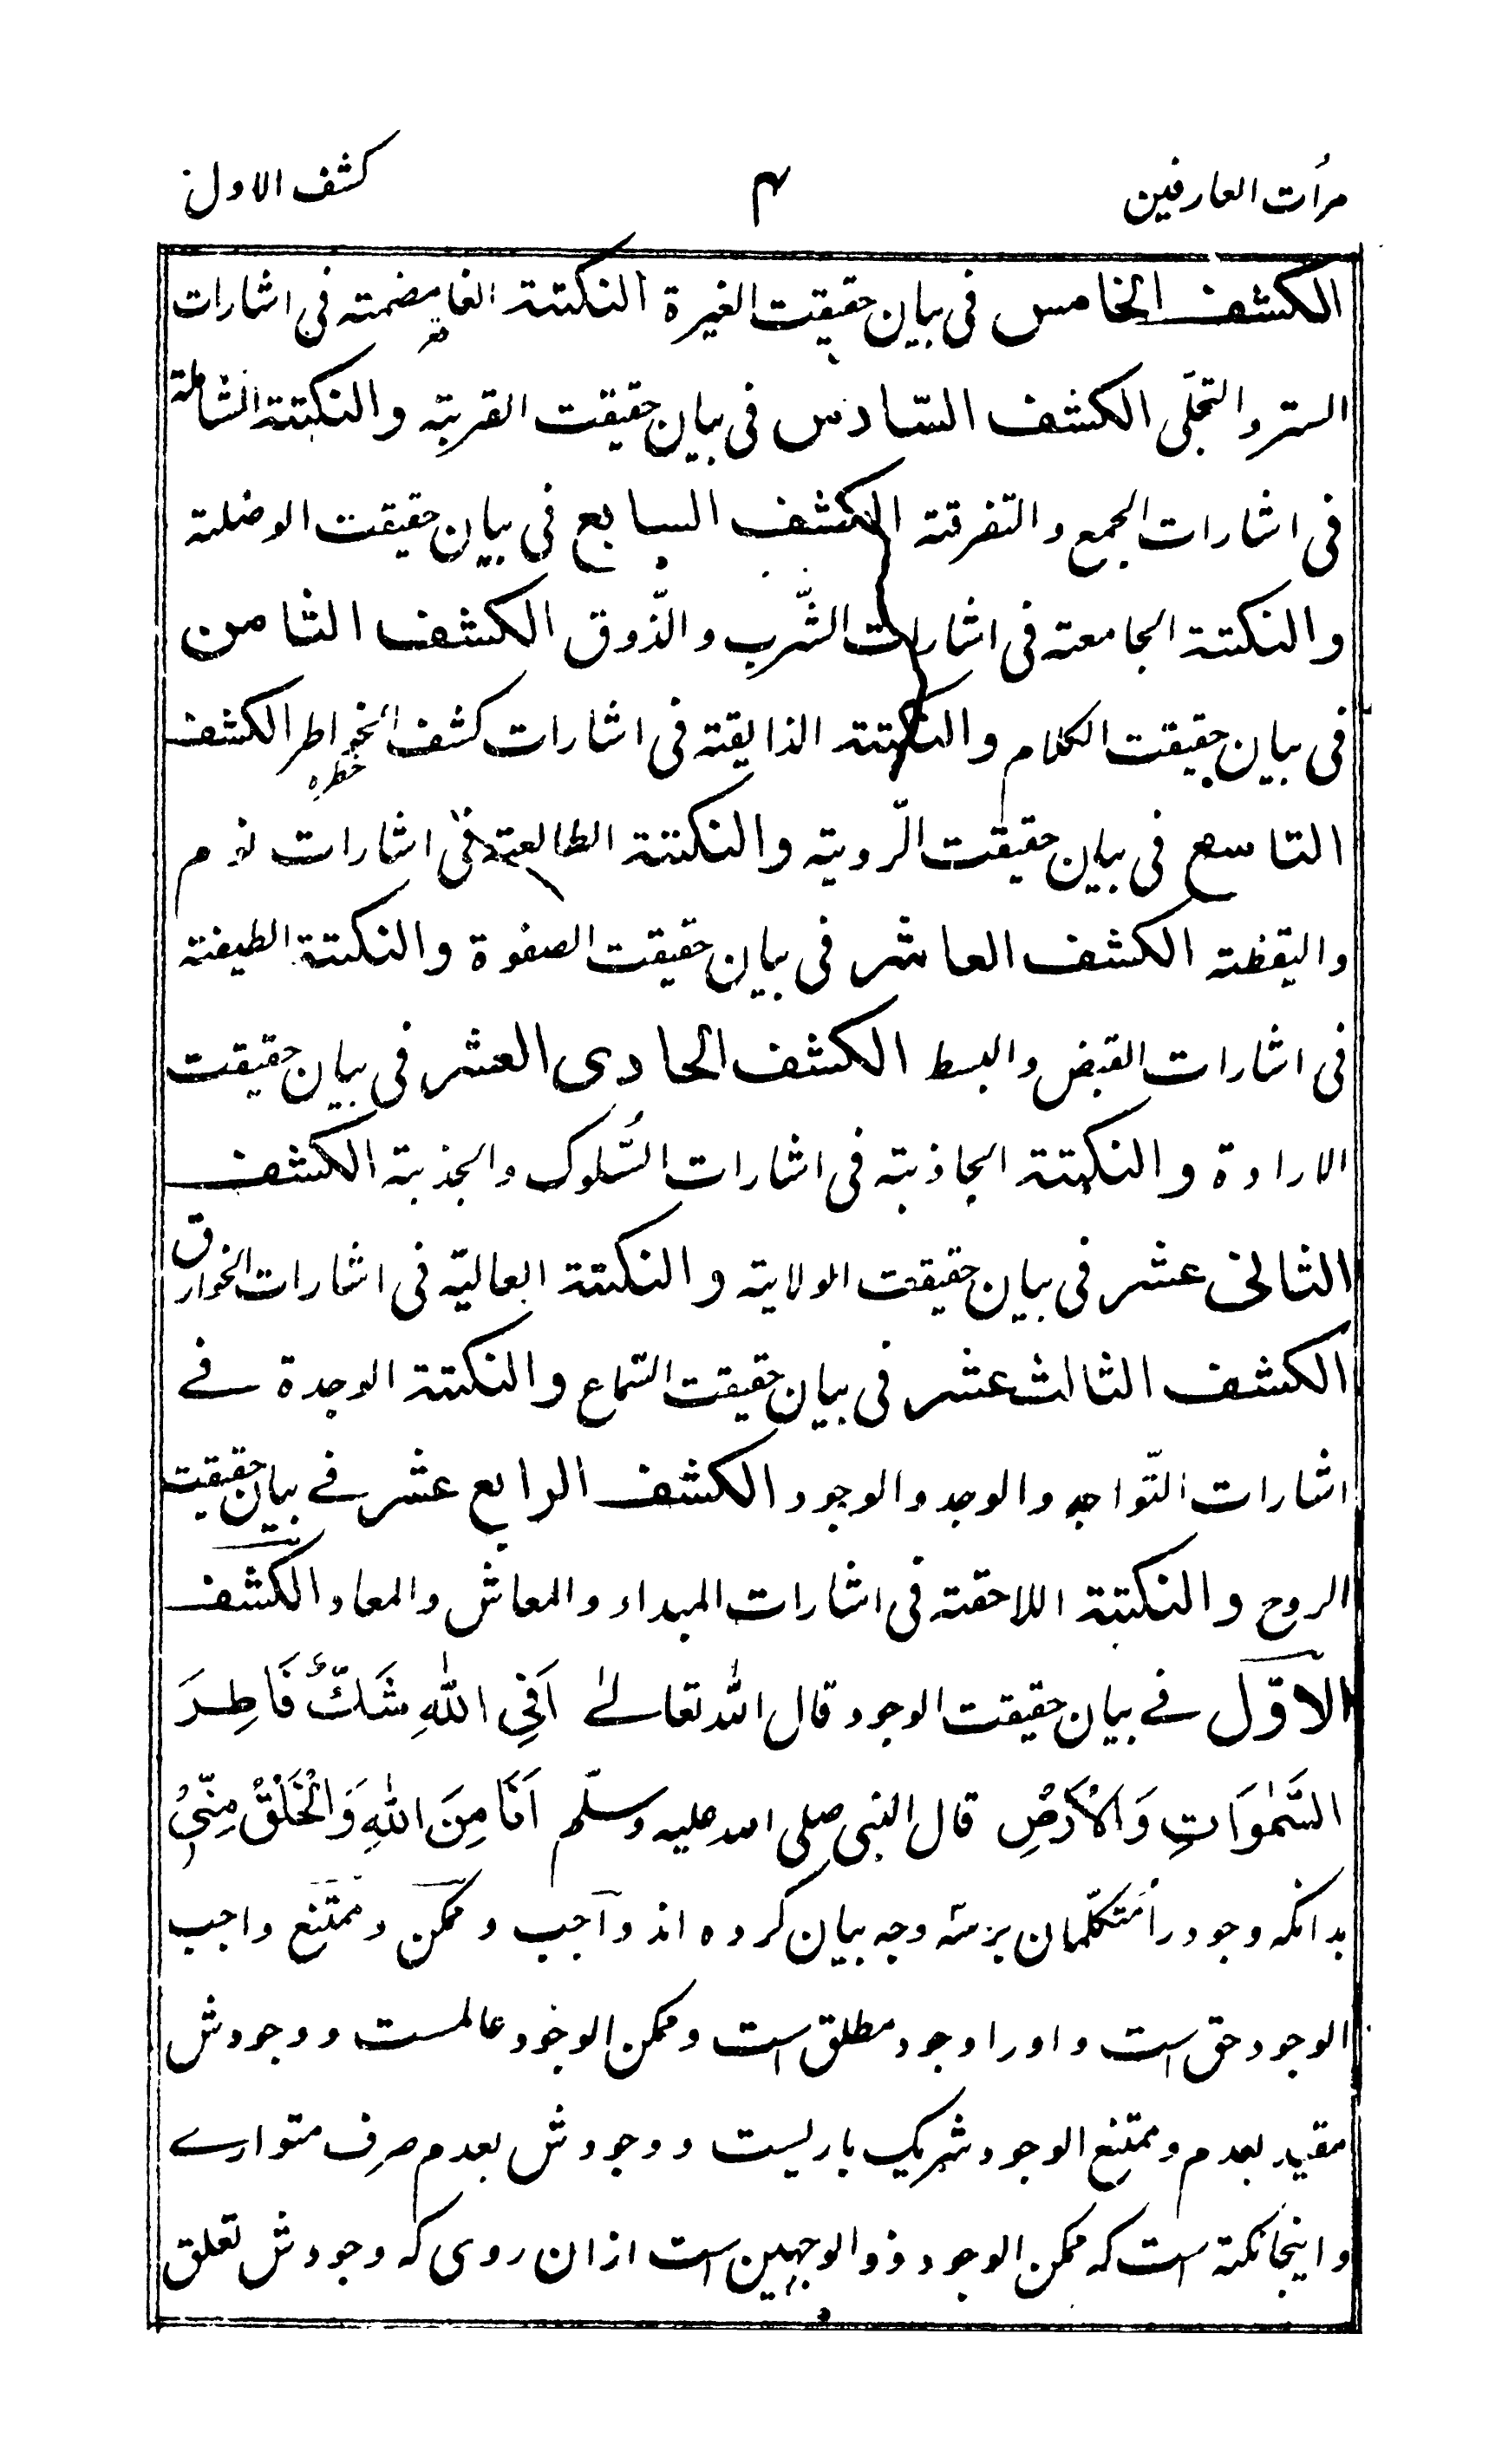 مرأت العارفين ۴ كشف الاول
الكشف الخامس فى بيان حقيقت الغيرة النكتة الغامضمته فى اشارات
الستر والتجلّى الكشف السّادس فى بيان حقيقت القربته والنكتة الشاملة
فى اشارات الجمع والتفرقته الكشف السابع فى بيان حقيقت الوصلته
والنكتة الجامعته فى اشارات الشّرب والذّوق الكشف الثامن
فى بيان حقيقت الكلام والنكتة الذايقته فى اشارات كشف الخواطر الكشف
خطره
التاسع فى بيان حقيقت الرّويته والنكتة الطالعته فى اشارات نوم
واليقظته الكشف العاشر فى بيان حقيقت الصفوة والنكتة الطيفته
فى اشارات القبض والبسط الكشف الحادى العشر فى بيان حقيقت
الارادة والنكتة الجاذبته فى اشارات السُّلوك والجذبته الكشف
الثانى عشر فى بيان حقيقت الولايته والنكتة العاليّه فى اشارات الخوارق
الكشف الثالث عشر فى بيان حقيقت السّماع والنكتة الوجدة فے
اشارات التّواجد والوجد والوجود الكشف الرابع عشر فے بيان حقيقت
الروح والنكتة اللاحقته فى اشارات المبداء والمعاش والمعاد الكشف
الاوّل فے بيان حقيقت الوجود قال الله تعالےٰ اَفِى اللهِ شَكٌّ فَاطِرَ
السَّمٰوَاتِ وَالْاَرْضِ قال النبى صلى الله عليه وسلّم اَنَا مِنَ اللهِ وَالْخَلْقُ مِنِّىْ
بدانكه وجود را متكلّمان بر سه وجه بيان كرده اند واجب و ممكن و ممتنع واجب
الوجود حق است و اورا وجود مطلق است و ممكن الوجود عالمست و وجودش
مقيد بعدم و ممتنع الوجود شريک باريست و وجودش بعدم صرف متوارے
و اينجا نكته است كه ممكن الوجود ذو الوجهين است ازان روى كه وجودش تعلق